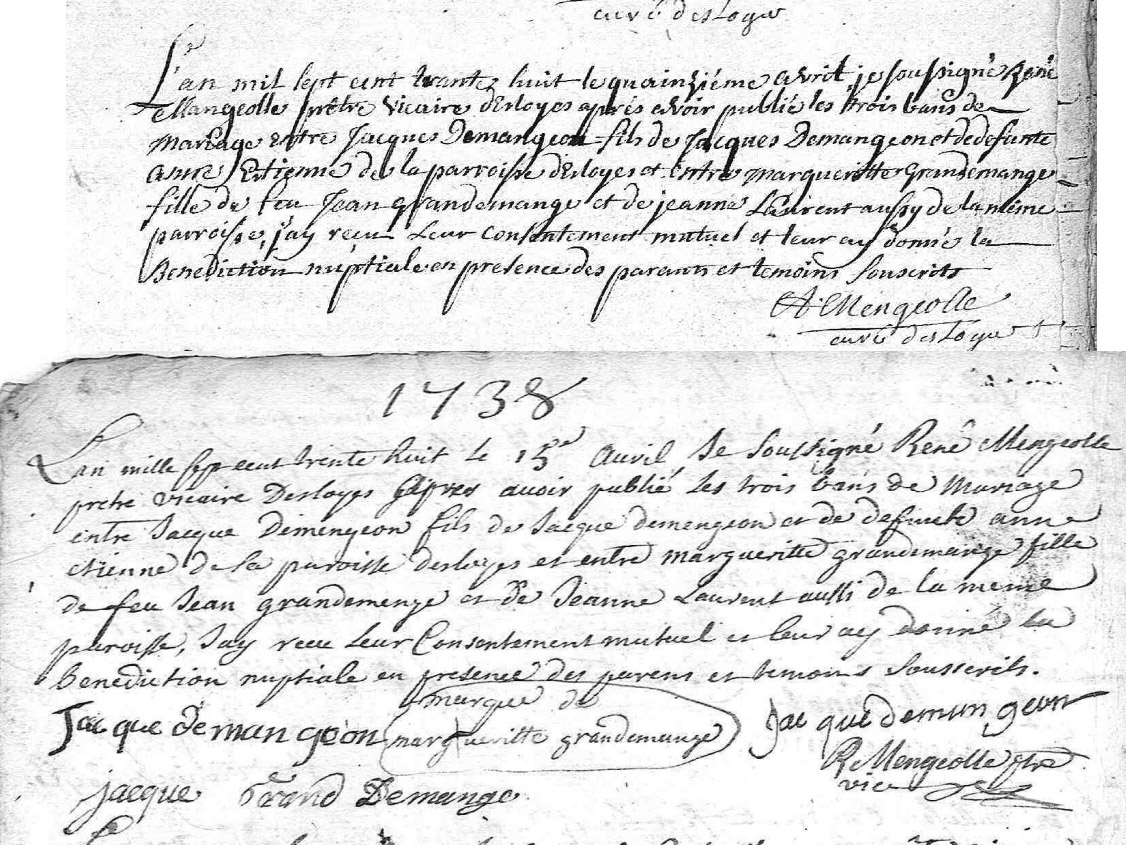 curé desLoye
L'an mil sept cent trante huit le quainziéme avril je soussigné René
Mangeolle prêtre vicaire d'Esloyes aprés avoir publié les trois bans de
Mariage entre Jacques Demangeon fils de Jacques Demangeon et de defunte
anne Etienne de la parroisse d'Esloyes et entre margueritte Grandemange
fille de feu Jean grandemange et de jeanne Laurent aussy de la même
parroisse, j'ay réçu Leur consentement mutuel et leur ay donné la
Benediction nuptiale en presence des parants et temoins souscrits
A Mengeolle
curé desLoye
1738
Lan mille sept cent trente huit le 15e Avril, Je soussigné René Mengeolle
pretre vicaire Desloyes apres avoir publié Les trois bans de Mariage
entre Jacque Demengeon fils de Jacque demengeon et de defunte anne
etienne de la paroisse desloyes et entre margueritte grandemange fille
de feu Jean grandemenge et de Jeanne Laurent aussi de la meme
paroisse, Jay receu Leur Consentement mutuel et leur ay donné la
benediction nuptiale en presence des parens et temoins sousscrits.
marque de
Jacque demangeon margueritte grandemange Jacque demangeon
R Mengeolle ptre
vice
jacque Grand Demange